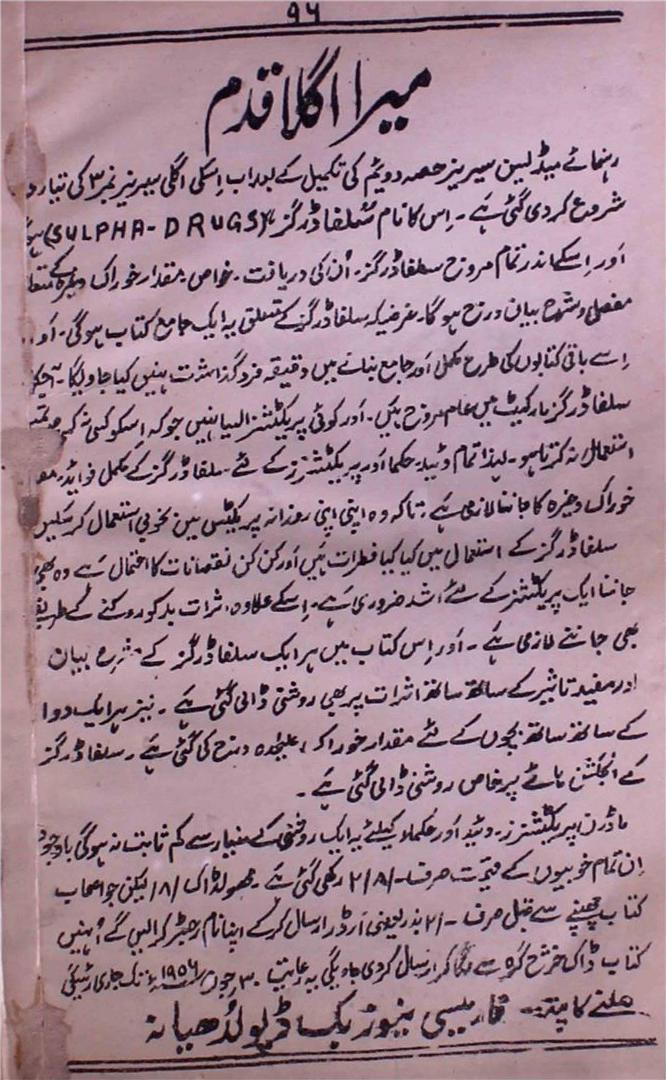 ۹۶
میرا اگلا قدم
رہنمائے میڈیسن سیریز حصہ دوئیم کی تکمیل کے بعد اب اِسکی اگلی سیریز نمبر ۳ کی تیار
شروع کردی گئی ہے ۔ اِس کا نام سُلفا ڈرگز (SULPHA-DRUGS)
اور اِسکے اندر تمام مروج سلفا ڈرگز ۔ اُن کی دریافت ۔ خواص ۔ مقدار خوراک وغیرہ کے
مفصل و مشرح بیان درج ہوگا ۔ غرضیکہ سلفا ڈرگز کے متعلق یہ ایک جامع کتاب ہوگی ۔ اور
اِسے باقی کتابوں کی طرح مکمل اور جامع بنانے میں دقیقہ فروگذاشت نہیں کیا جاویگا ۔ آجکل
سلفا ڈرگز مارکیٹ میں عام مروج ہیں ۔ اور کوئی پریکٹشنر ایسا نہیں جوکہ اِسکو کسی نہ کسی
استعمال نہ کرتا ہو ۔ لہذا تمام وئید ۔ حکما اور پریکٹشنرز کے لئے ۔ سلفا ڈرگز کے مکمل فوائد ۔
خوراک وغیرہ کا جاننا لازمی ہے ۔ تاکہ وہ اپنی اپنی روزانہ پریکٹس میں بخوبی استعمال کرسکیں
سلفا ڈرگز کے استعمال میں کیا کیا خطرات ہیں اور کن کن نقصانات کا احتمال ہے وہ بھی
جاننا ایک پریکٹشنر کے لئے اشد ضروری ہے ۔ اِسکے علاوہ اثرات بد کو روکنے کے طریقے
بھی جاننے لازمی ہے ۔ اور اِس کتاب میں ہر ایک سلفا ڈرگز کے مشرح بیان
اور مفید تاثیر کے ساتھ ساتھ اثرات پر بھی روشنی ڈالی گئی ہے ۔ نیز ہر ایک دوا
کے ساتھ ساتھ بچوں کے لئے مقدار خوراک علیحدہ درج کی گئی ہے ۔ سلفا ڈرگز
کے انجکشن ہائے پر خاص روشنی ڈالی گئی ہے ۔
ماڈرن پریکٹشنرز ۔ وئید اور حُکما کیلئے یہ ایک روشنی کے مینار سے کم ثابت نہ ہوگی باوجود
اِن تمام خوبیوں کے قیمت صرف ۲/۸/- رکھی گئی ہے ۔ محصولڈاک /۸/ لیکن جو اصحاب
کتاب چھپنے سے قبل صرف ۲/- بذریعہ منی آرڈر ارسال کرکے اپنا نام رجسٹر کرالیں گے اُنہیں
کتاب ڈاک خرچ گرہ سے لگا کر ارسال کردی جاویگی یہ رعایت ۳۰ جون ۱۹۵۶ء تک جاری رہیگی
ملنے کا پتہ ۔ فارمیسی نیوز بک ڈپو لُدھیانہ